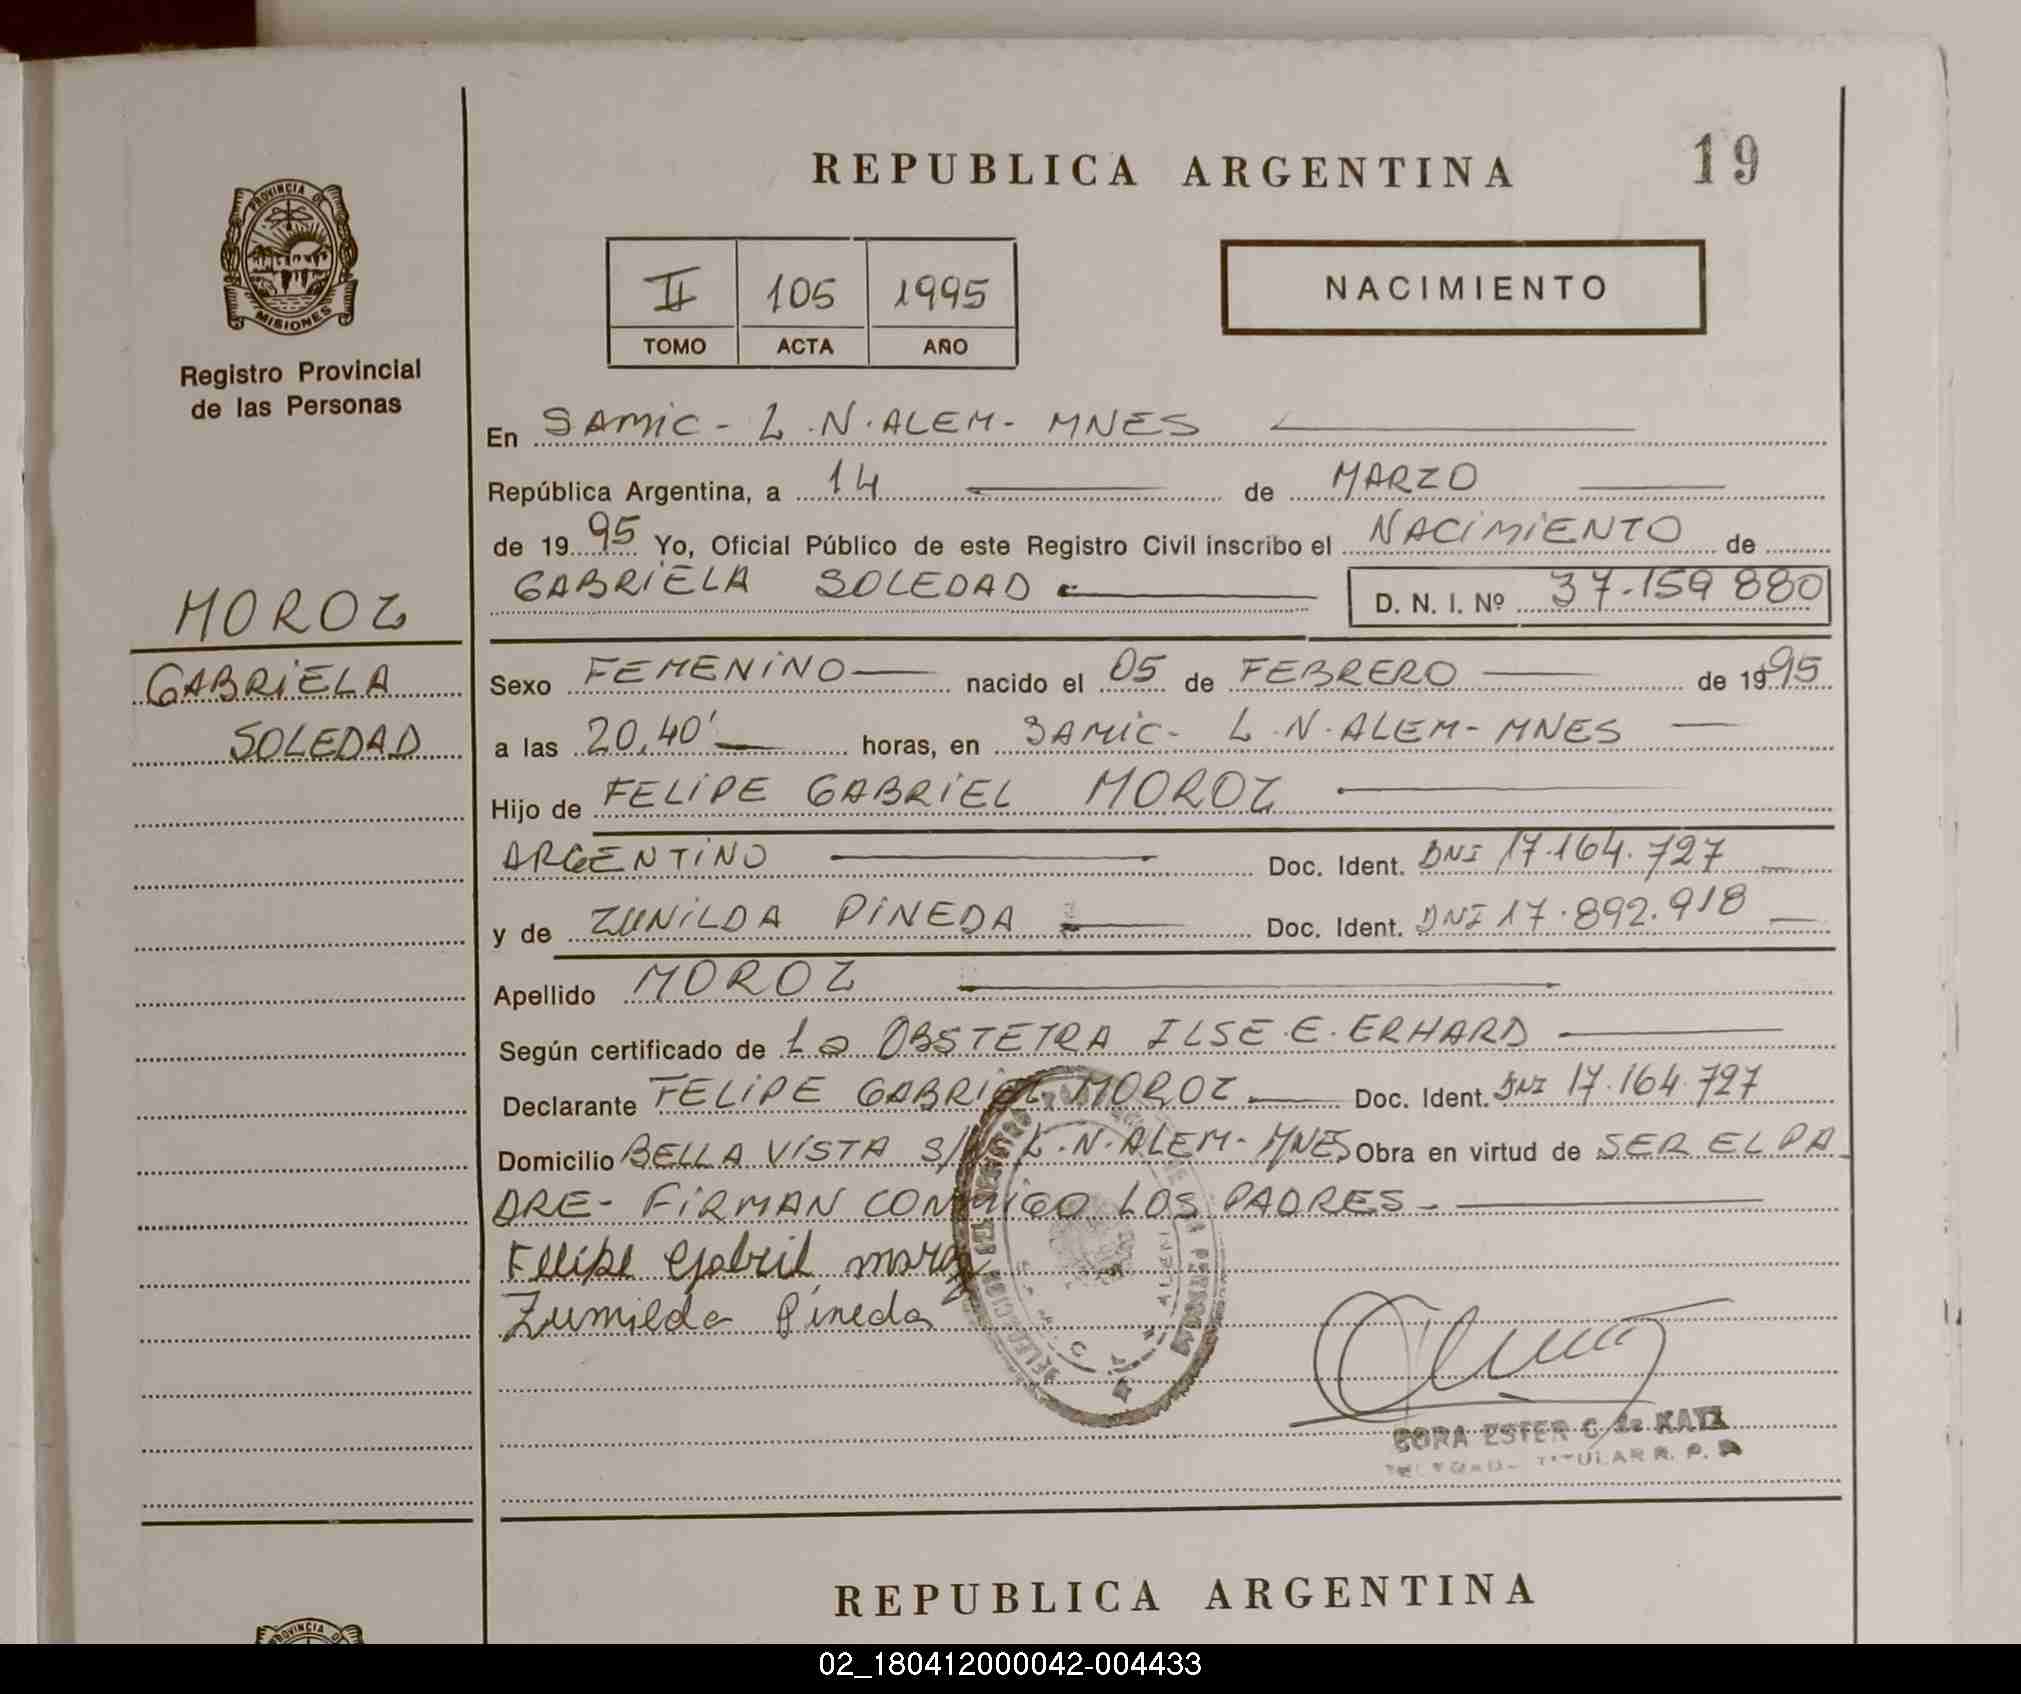 REPUBLICA ARGENTINA
19
PROVINCIA DE
MISIONES
Registro Provincial
de las Personas
II 105 1995
TOMO ACTA AÑO
NACIMIENTO
En SAMIC - L.N.ALEM - MNES
República Argentina, a 14 de MARZO
de 1995 Yo, Oficial Público de este Registro Civil inscribo el NACIMIENTO de
GABRIELA SOLEDAD D. N. I. Nº 37.159 880
MOROZ
GABRIELA
SOLEDAD
Sexo FEMENINO nacido el 05 de FEBRERO de 1995
a las 20,40' horas, en SAMIC - L.N.ALEM - MNES
Hijo de FELIPE GABRIEL MOROZ
ARGENTINO Doc. Ident. DNI 17.164.727
y de ZUNILDA PINEDA Doc. Ident. DNI 17.892.918
Apellido MOROZ
Según certificado de La OBSTETRA ILSE E. ERHARD
Declarante FELIPE GABRIEL MOROZ Doc. Ident. DNI 17.164.727
Domicilio BELLA VISTA S/N L.N.ALEM - MNES Obra en virtud de SER EL PA
DRE - FIRMAN CONMIGO LOS PADRES -
Felipe Gabriel moroz
Zunilda Pineda
ESTER C. de KATZ
TITULAR R. P. P.
REPUBLICA ARGENTINA
PROVINCIA D
02_180412000042-004433